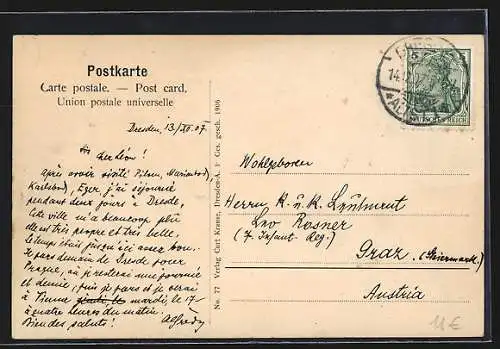 Postkarte
Carte postale. — Post card.
Union postale universelle
Dresden, 13/XII.07.
cher Léon!
Après avoir visité Pilsen, Marienbad,
Karlsbad, Eger, j'ai séjourné
pendant deux jours à Dresde,
Cette ville m'a beaucoup plu
elle est très propre et très belle,
le temps était jusqu'ici assez bon.
Je pars demain de Dresde pour
Prague, où je resterai une journée
et demie, puis je pars et je serai
à Vienne jeudi, le mardi, le 17
à quatre heures du matin.
Bien des saluts! Alfred
No. 77 Verlag Curt Krause, Dresden-A. 1 Ges. gesch. 1906
DEUTSCHES REICH
Wohlgeboren
Herrn K. u. K. Leutnant
Leo Rosner
(7. Infant. Reg.)
Graz (Steiermark)
Austria
11€